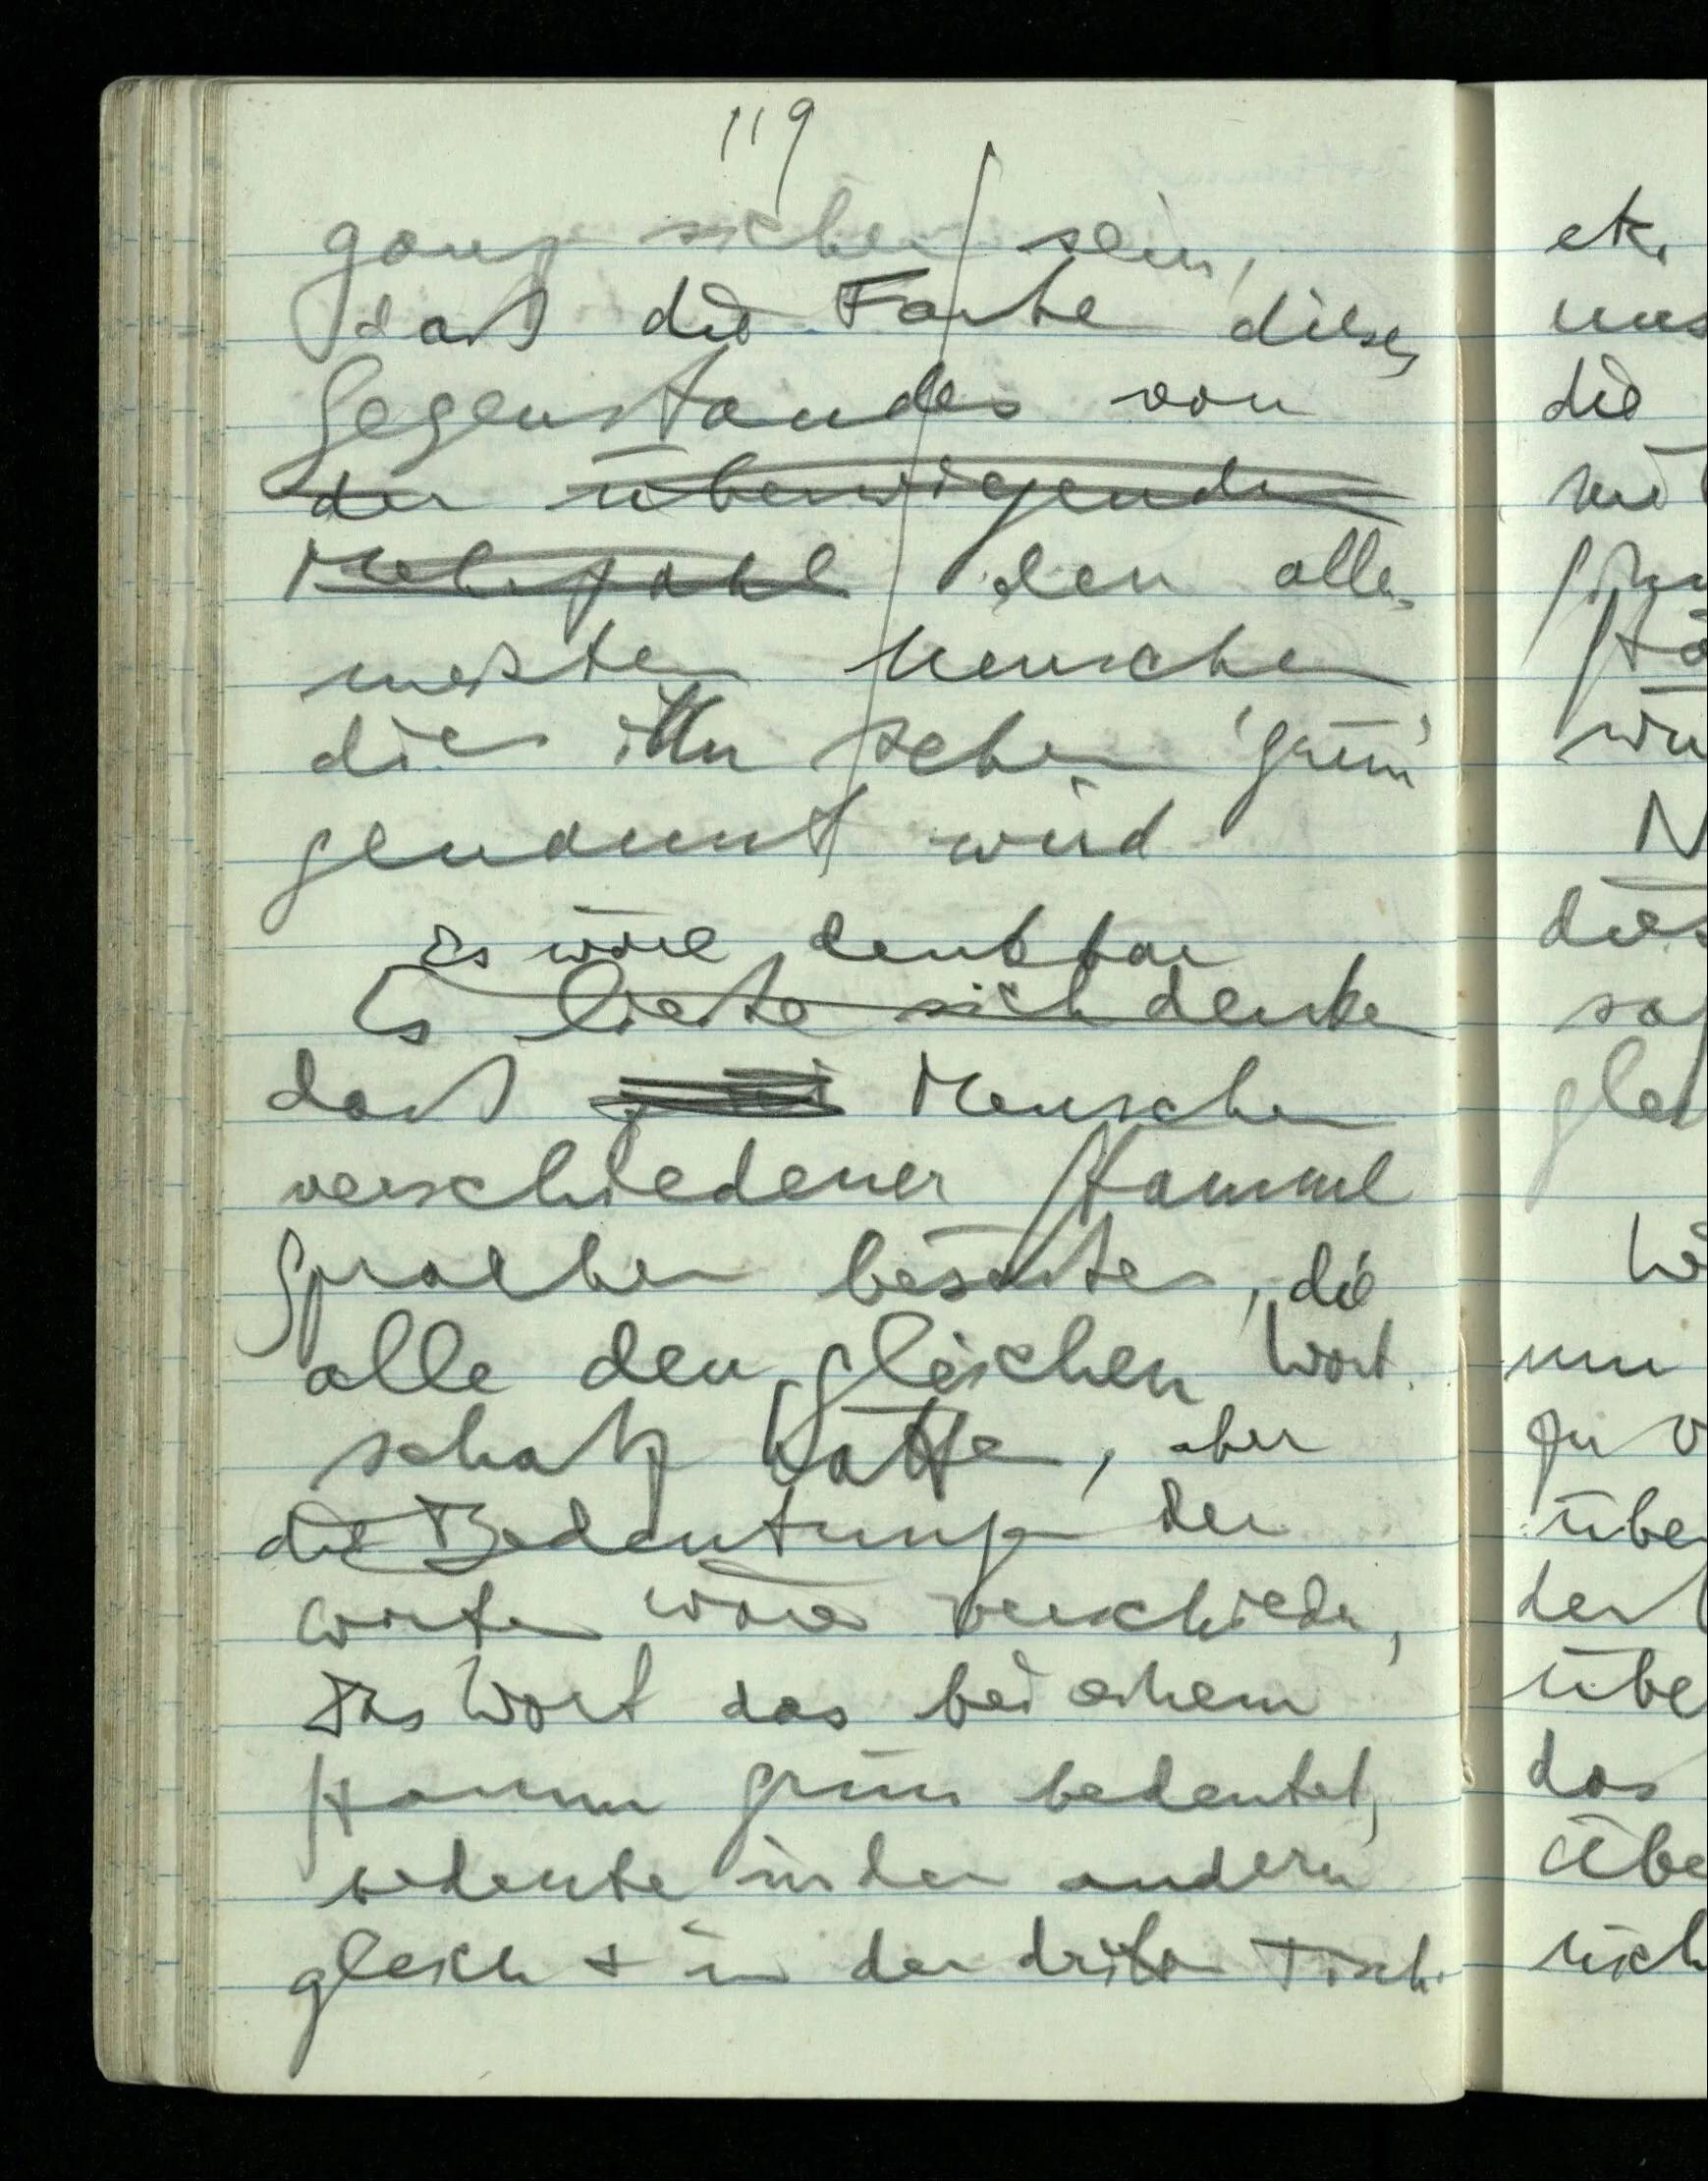 119
ganz sicher sein,
daß die Farbe dieses
Gegenstandes von
der überwiegenden
Mehrzahl den aller
meisten Menschen
die ihn sehen 'grün'
genannt wird
Es wäre denkbar
Es ließe sich denken
daß Menschen
verschiedener Stämme
Sprachen besäßen, die
alle den gleichen Wort
schatz hätten, aber
die Bedeutungen der
Worte wären verschieden,
Das Wort das bei einem
Stamm grün bedeutet,
bedeute in der andern
gleich & in der dritten Tisch
etc.
die